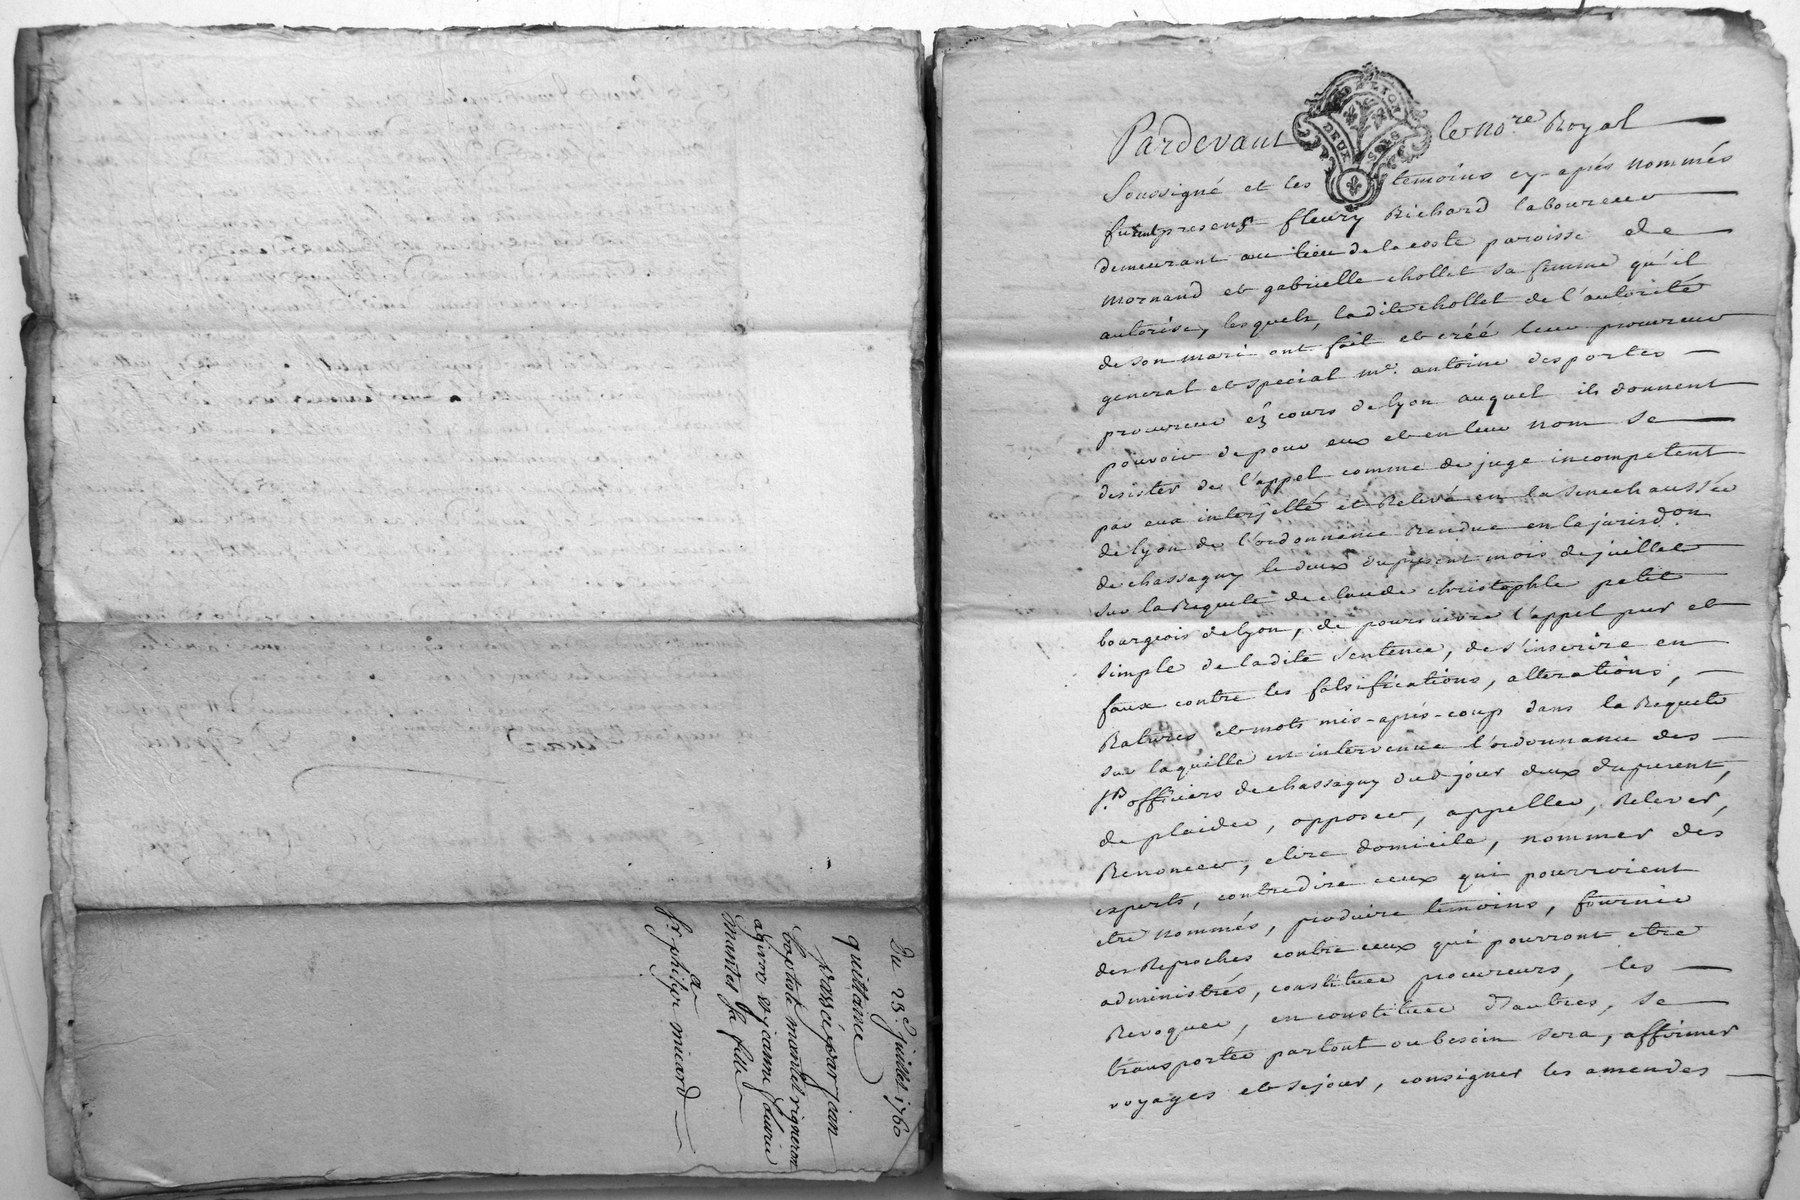 Du 25e Juillet 1760
quittance
passé par jean
baptiste mantel vigneron
a givors et jeanne
mantel sa fille
a
sr. philipe micard
GEN. DE LION
DEUX SOLS
Pardevant le no.re Royal
Soussigné et les temoins cy-aprés nommés
furent presents fleury Richard laboureur
demeurant au lieu de la coste paroisse de
Mornand et gabrielle chollet sa femme qu'il
autorise, lesquels, ladite chollet de l'autorité
de son mari ont fait et créé leur procureur
general et special me. antoine desportes
procureur ez cours de lyon auquel ils donnent
pouvoir de pour eux et en leur nom se
desister de l'appel comme de juge incompetent
par eux interjetté et Relevé en la Senechaussée
de lyon de l'ordonnance Rendue en la jurisd.on
de chassagny le deux du present mois de juillet
sur la Requete de claude christophle petit
bourgeois de lyon, de poursuivre l'appel pur et
simple de ladite sentence, de s'inscrire en
faux contre les falsifications, alterations,
Ratures et mots mis-aprés-coup dans la Requete
sur laquelle est intervenue l'ordonnance des
srs officiers de chassagny dud jour deux du present,
de plaider, opposer, appeller, Relever,
Renoncer, elire domicile, nommer des
experts, contredire ceux qui pourroient
etre nommés, produire temoins, fournir
des Reproches contre ceux qui pourront etre
administrés, constituer procureurs, les
Revoquer, en constituer d'autres, se
transporter partout ou besoin sera, affirmer
voyages et sejour, consigner les amendes